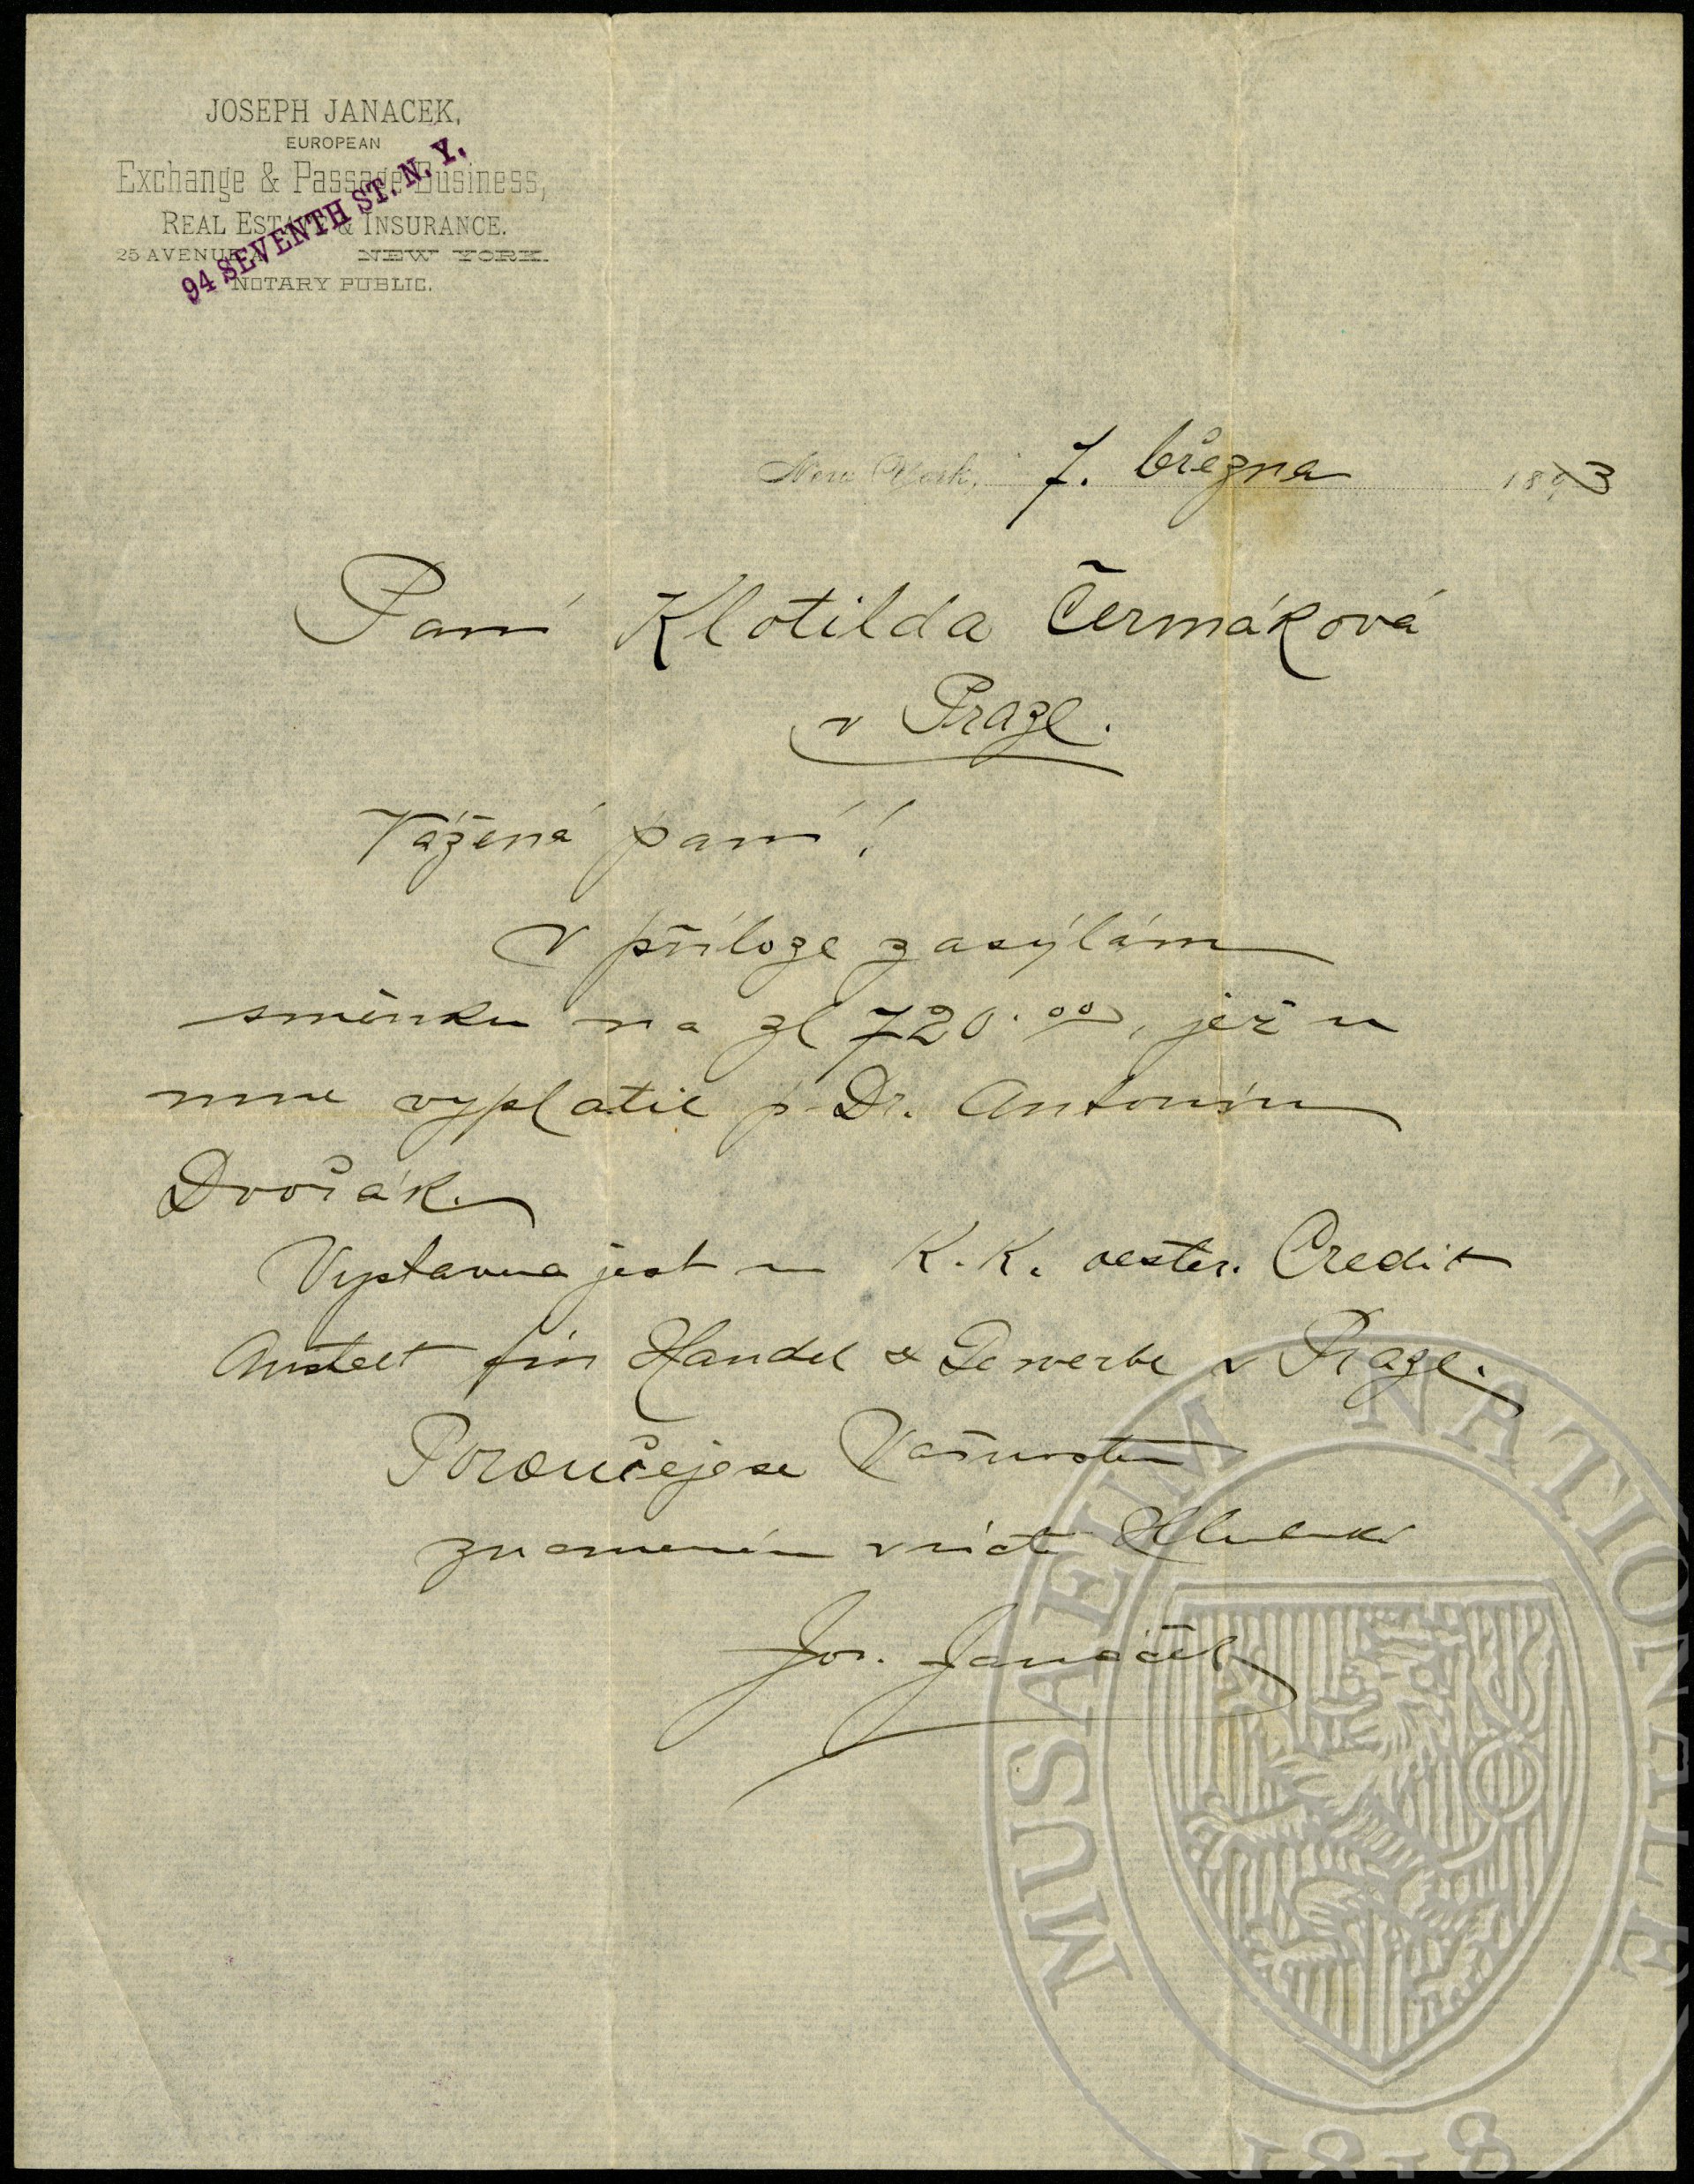 JOSEPH JANACEK,
EUROPEAN
Exchange & Passage Business,
REAL ESTATE & INSURANCE.
25 AVENUE A NEW YORK.
NOTARY PUBLIC.
94 SEVENTH ST. N. Y.
New York, 7. března 1893
Paní Klotilda Čermáková
v Praze.
Vážená paní!
V příloze zasýlám
směnku na zl 720.00, jež u
mne vyplatil p. Dr. Antonín
Dvořák.
Vystavena jest u K. K. oester. Credit
Anstalt für Handel & Gewerbe v Praze.
Poroučeje se Vašnosti
znamenám v úctě
Jos. Janáček
MUSAEUM NATIONALE
1818